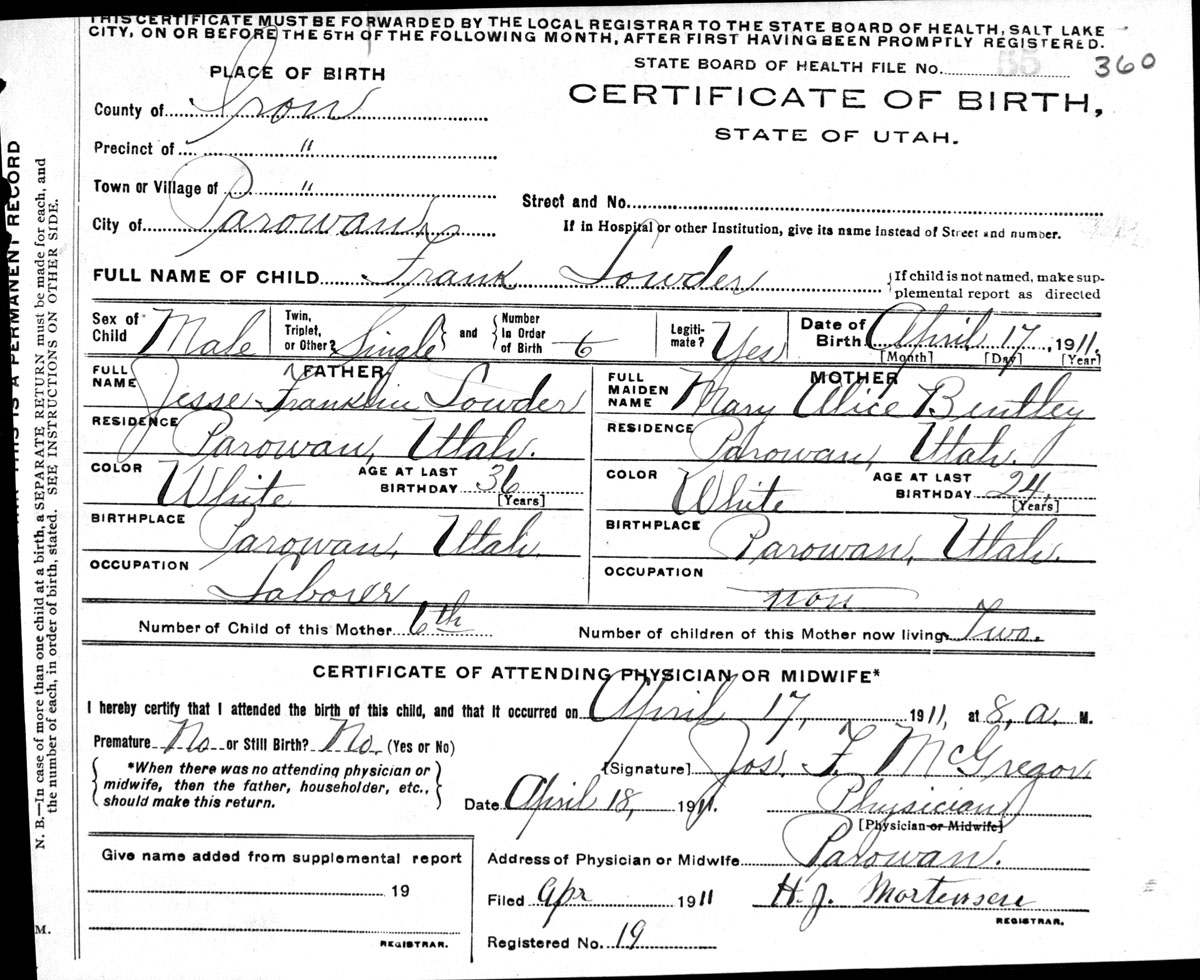 THIS CERTIFICATE MUST BE FORWARDED BY THE LOCAL REGISTRAR TO THE STATE BOARD OF HEALTH, SALT LAKE
CITY, ON OR BEFORE THE 5TH OF THE FOLLOWING MONTH, AFTER FIRST HAVING BEEN PROMPTLY REGISTERED.
PLACE OF BIRTH
STATE BOARD OF HEALTH FILE No. 55 360
CERTIFICATE OF BIRTH,
STATE OF UTAH.
County of Iron
Precinct of "
Town or Village of "
City of Parowan
Street and No.
If in Hospital or other Institution, give its name instead of Street and number.
FULL NAME OF CHILD Frank Lowder
{If child is not named, make sup-
plemental report as directed
Sex of Child Male
Twin, Triplet, or Other? Single} and {Number In Order of Birth 6
Legiti-mate? Yes
Date of Birth April 17, 1911,
[Month] [Day] [Year]
FATHER
FULL NAME Jesse Franklin Lowder
RESIDENCE Parowan, Utah.
COLOR White AGE AT LAST BIRTHDAY 36 [Years]
BIRTHPLACE Parowan, Utah.
OCCUPATION Laborer
MOTHER
FULL MAIDEN NAME Mary Alice Bentley
RESIDENCE Parowan, Utah.
COLOR White AGE AT LAST BIRTHDAY 24, [Years]
BIRTHPLACE Parowan, Utah.
OCCUPATION non
Number of Child of this Mother 6th Number of children of this Mother now living Two.
CERTIFICATE OF ATTENDING PHYSICIAN OR MIDWIFE*
I hereby certify that I attended the birth of this child, and that it occurred on April 17, 1911, at 8, a. M.
Premature No or Still Birth? No. (Yes or No)
{*When there was no attending physician or
midwife, then the father, householder, etc.,
should make this return.}
[Signature] Jos. F. McGregor
Date April 18, 1911. Physician
[Physician or Midwife]
Address of Physician or Midwife Parowan.
Filed Apr 1911 H. J. Mortensen
REGISTRAR.
Registered No. 19
Give name added from supplemental report
19
REGISTRAR.
THIS IS A PERMANENT RECORD
N. B.—In case of more than one child at a birth, a SEPARATE RETURN must be made for each, and
the number of each, in order of birth, stated. SEE INSTRUCTIONS ON OTHER SIDE.
M.